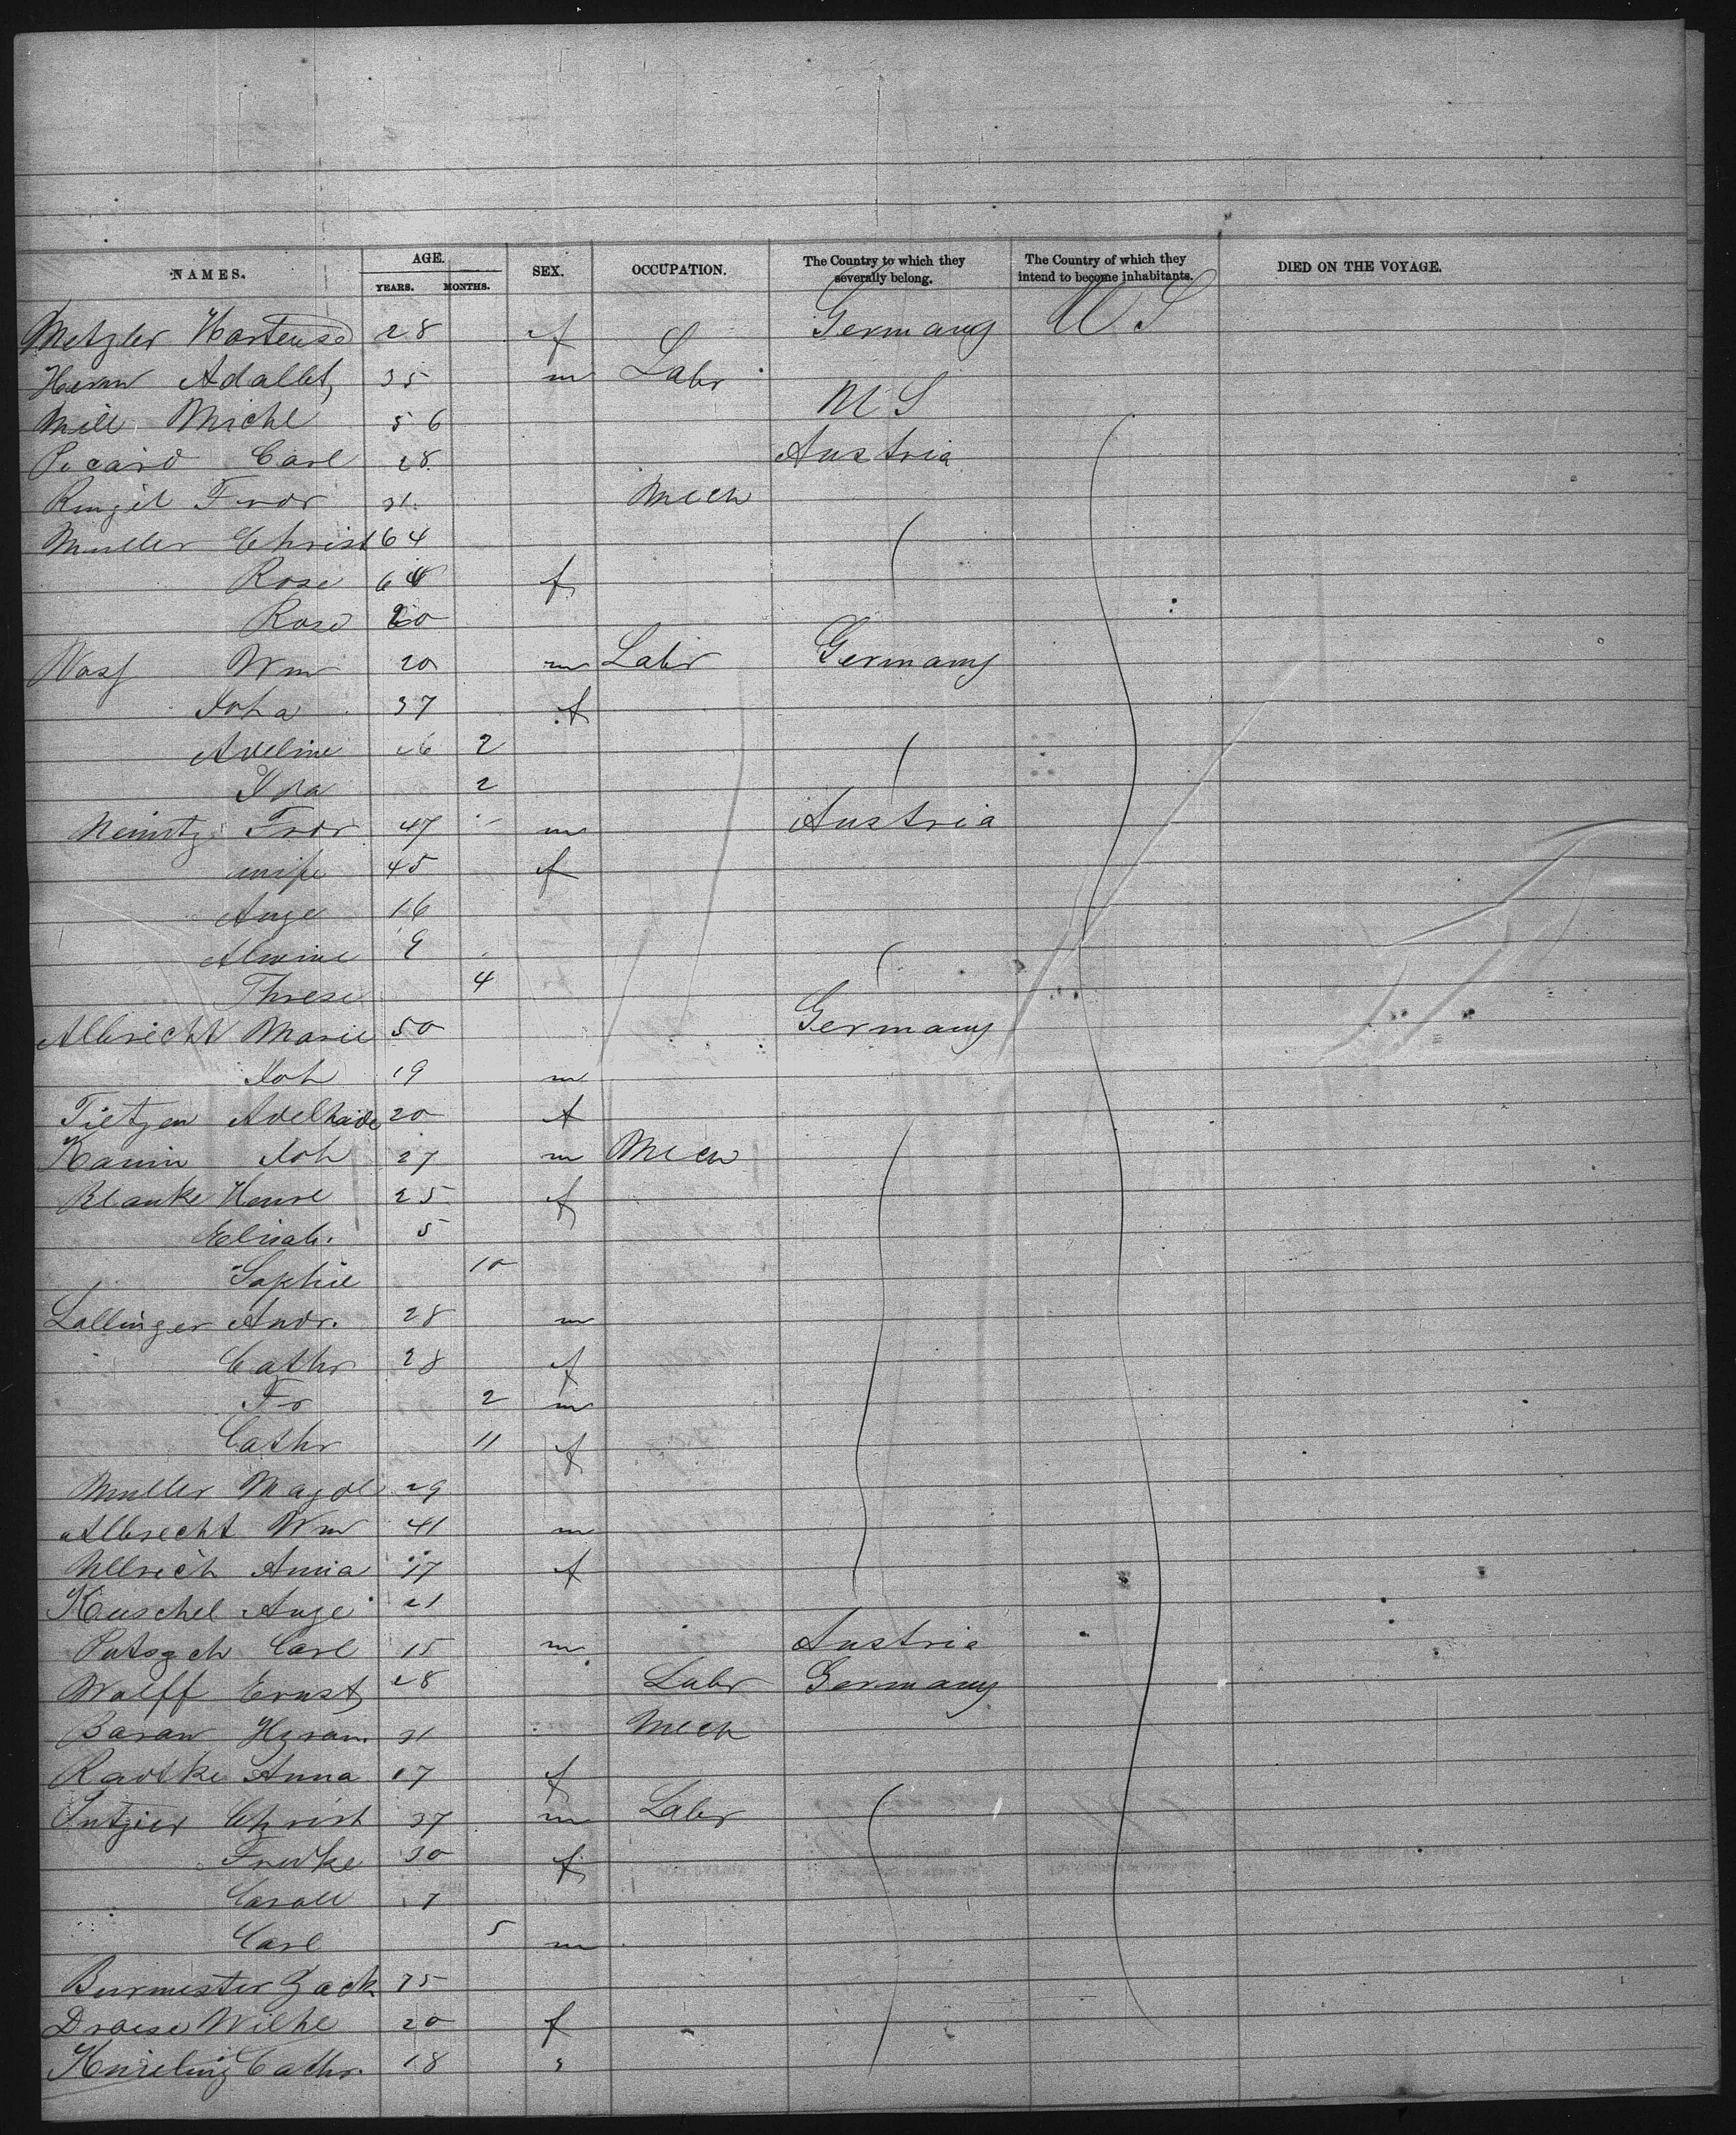 NAMES. AGE. YEARS. MONTHS. SEX. OCCUPATION. The Country to which they severally belong. The Country of which they intend to become inhabitants. DIED ON THE VOYAGE.
Metzler Hortense 28 f Germany U S
Herm Adalbt, 35 m Labr
Mill Michl 56 U S
Picard Carl 28 Austria
Fredr 31 Mech
Muller Christ 64
Rose 64 f
Rose 20
Wm 20 m Labr Germany
Joha 37 f
Adeline 2
Ida 2
Fredr 47 m Austria
wife 45 f
Auge 16
Alwine 9
Threse 4
Albrecht Marie 50 Germany
Joh 19 m
Tietzen Adelhaide 20 f
Kamin Joh 27 m Mech
Blanke Henre 25 f
Elisab. 5
Sophie 10
Lallinger Andr. 28 m
Cathr 28 f
Fr 2 m
Cathr 11 f
Muller Magdl 29
Albrecht Wm 41 m
Ullrich Anna 17 f
Kuschel Auge 21
Carl 15 m Austria
Wolff Ernst 28 Labr Germany
Baran Hram. 31 Mech
Radtke Anna 17 f
Christ 37 m Labr
Fredke 30 f
Caroll 7
Carl 5 m
Burmester 75
Draese Wilhe 20 f
Cathr. 18 "